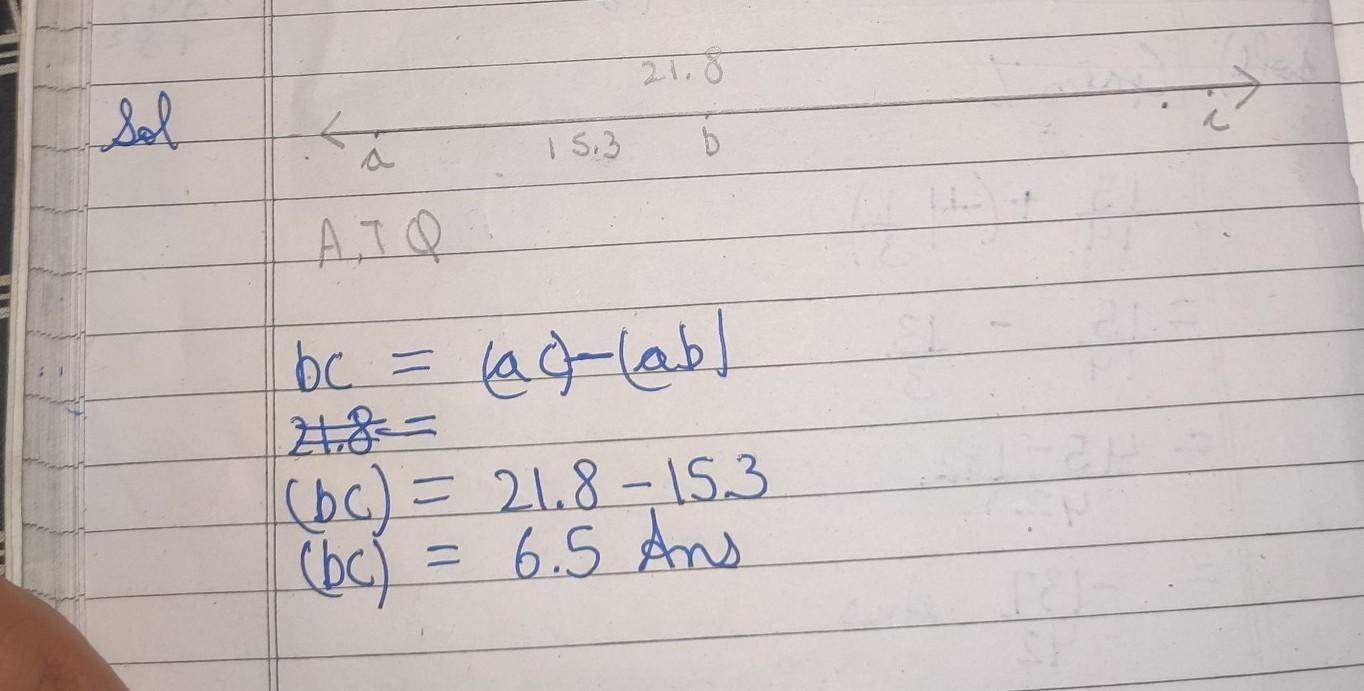 21.8
Sol
a 15.3 b c
A,T Q
bc = (ac)-(ab)
21.8 =
(bc) = 21.8 - 15.3
(bc) = 6.5 Ans